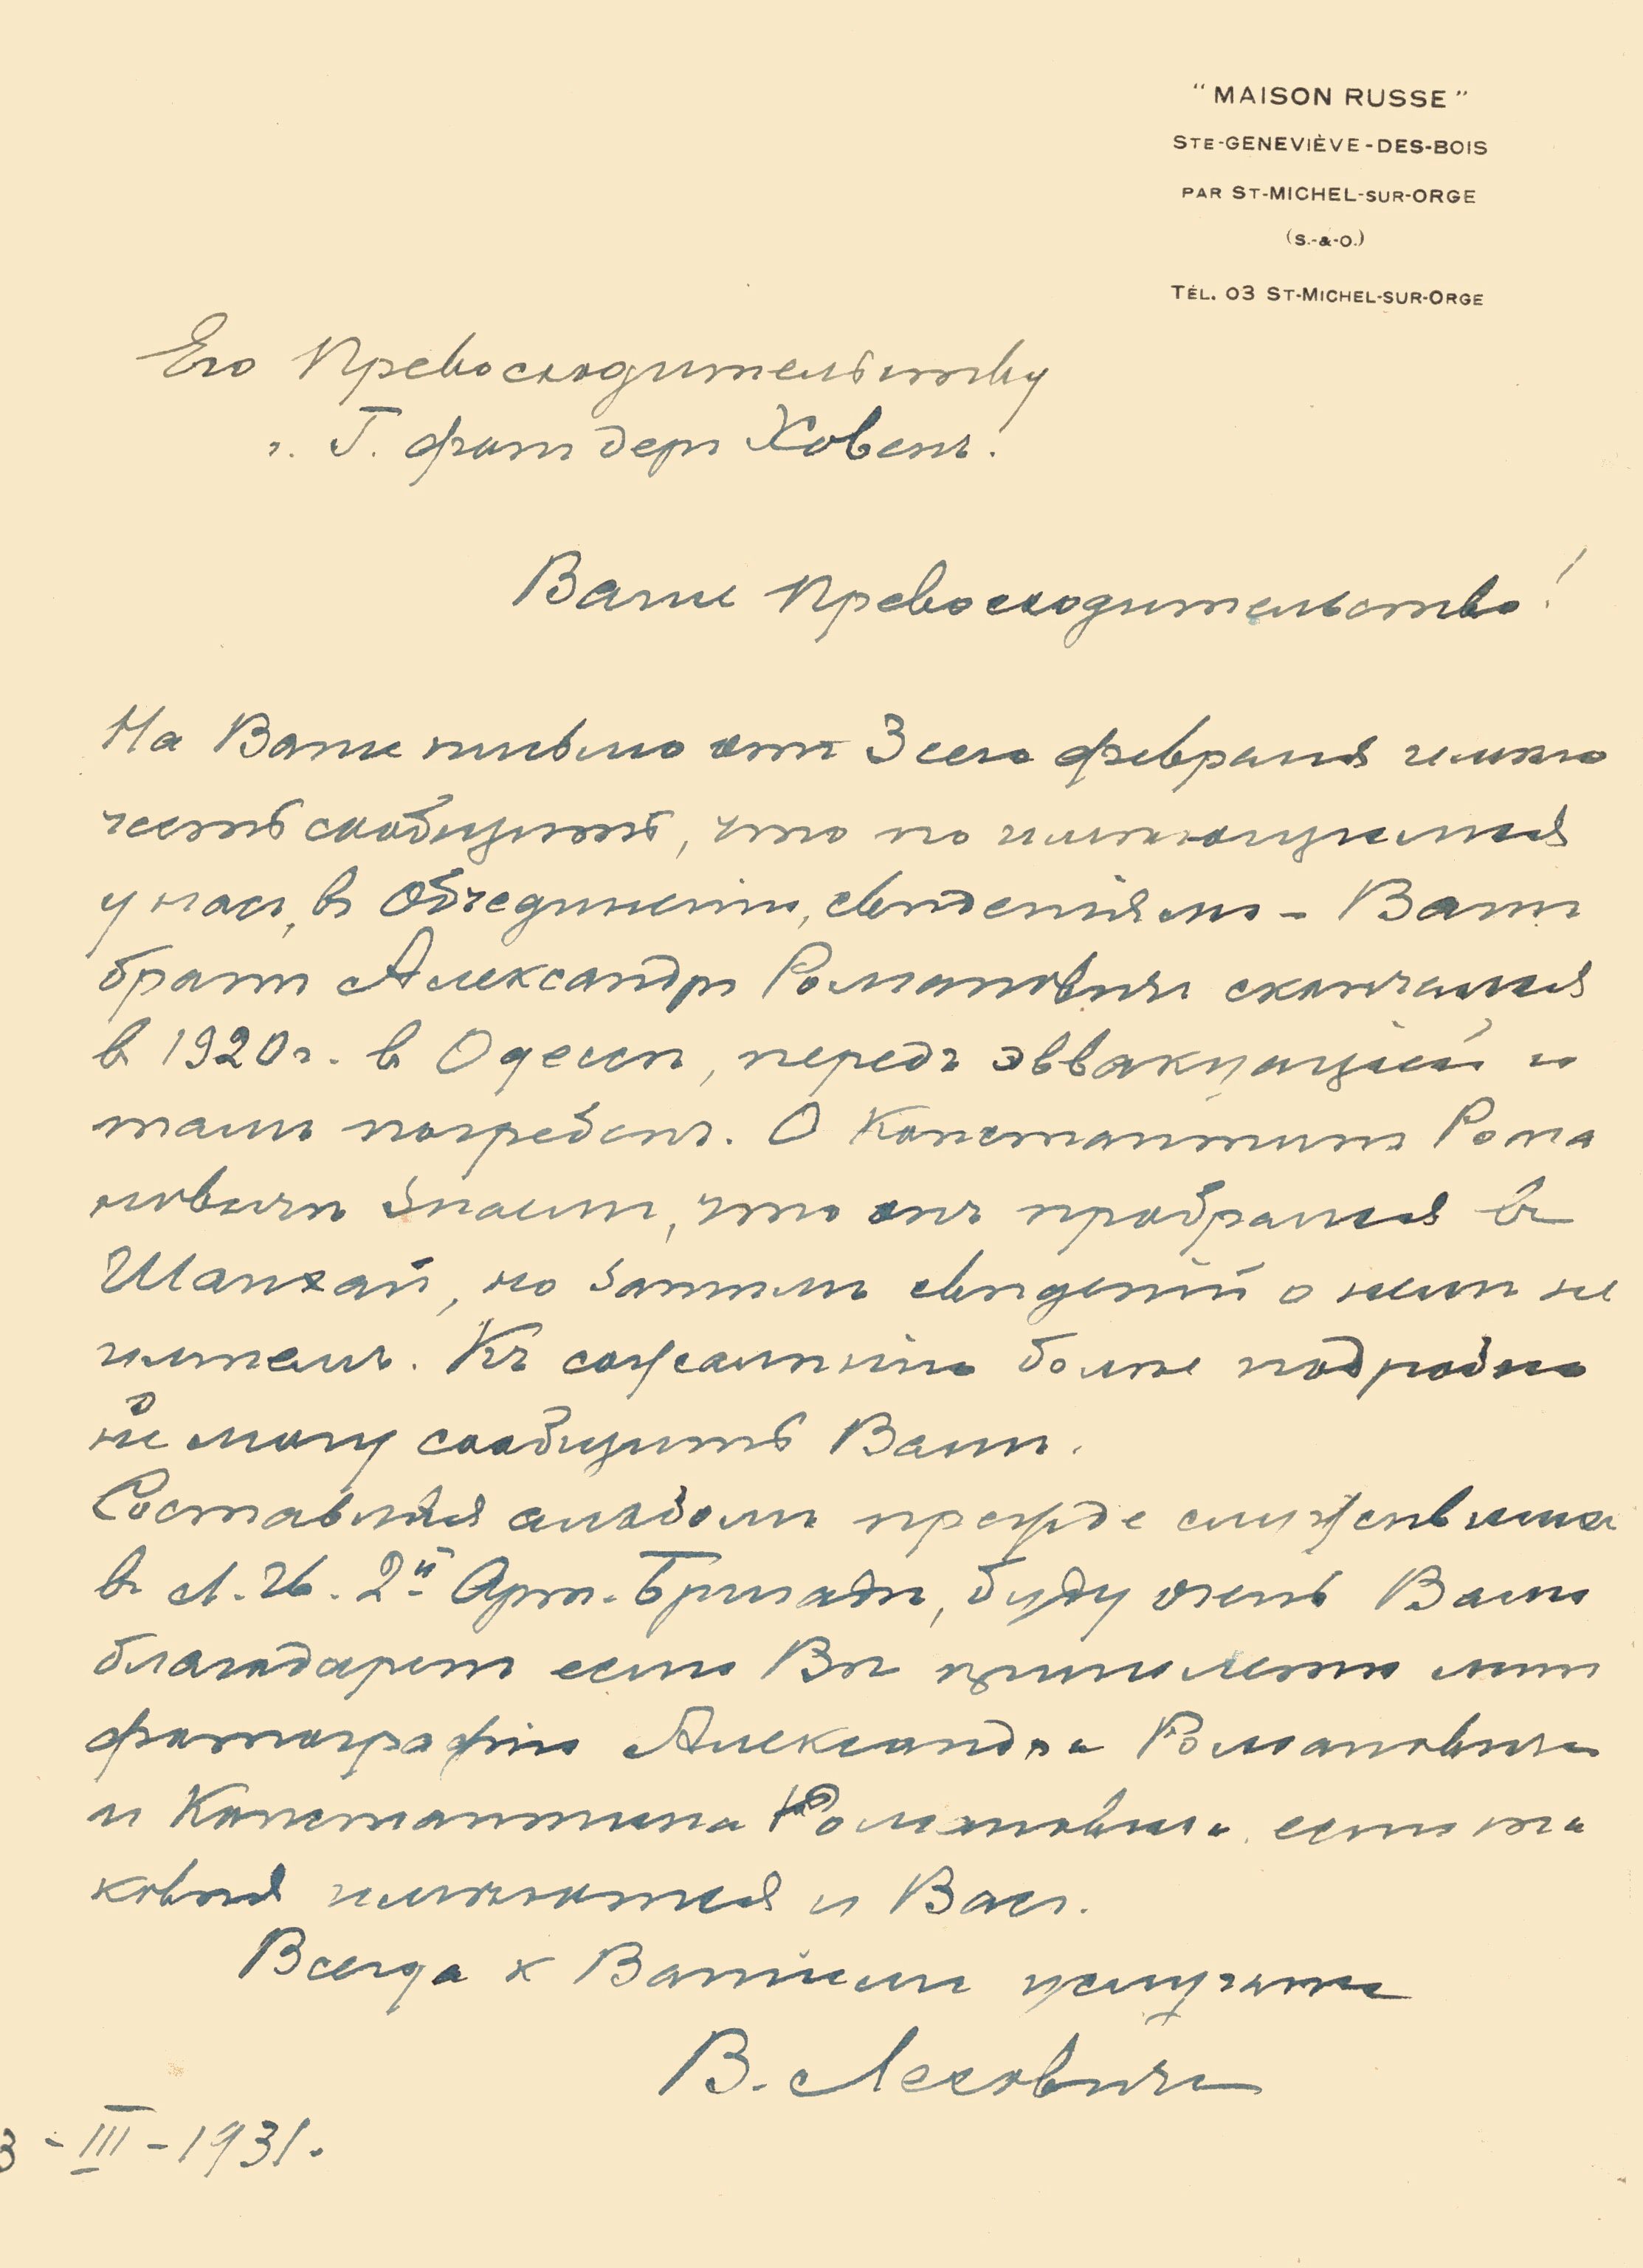 "MAISON RUSSE"
STE-GENEVIÈVE-DES-BOIS
PAR ST-MICHEL-SUR-ORGE
(S.-&-O.)
TÉL. 03 ST-MICHEL-SUR-ORGE
Его Превосходительству
г. Г. фатъ деръ Ховенъ.
Ваше Превосходительство!
На Ваше письмо отъ 3 сего февраля имѣю
честь сообщить, что по имѣющимся
у насъ, въ Объединеніи, свѣдѣніямъ - Вашъ
братъ Александръ Романовичъ скончался
в 1920 г. в Одессѣ, передъ эввакуаціей и
тамъ погребенъ. О Константинѣ Рома
новичѣ знаемъ, что онъ пробрался въ
Шанхай, но затѣмъ свѣдѣній о немъ не
имѣемъ. Къ сожалѣнію болѣе подробно
не могу сообщить Вамъ.
Составляя альбомъ прежде служившихъ
въ Л. Гв. 2й Арт. Бригадѣ, буду очень Вамъ
благодаренъ если Вы пришлете мнѣ
фотографію Александра Романовича
и Константина Романовича если та
ковыя имѣются у Васъ.
Всегда к Вашимъ услугамъ
В. Лехович
3 - III - 1931.